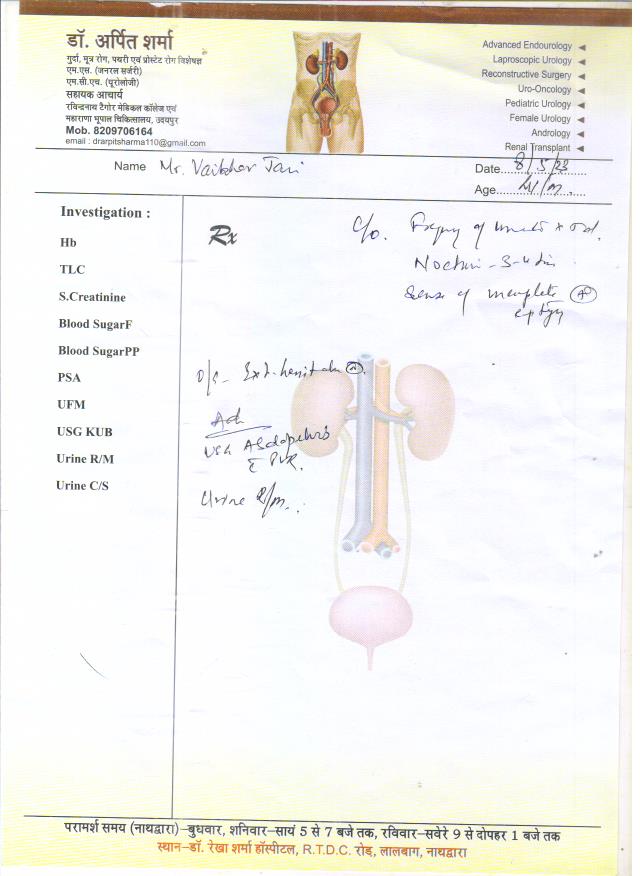 डॉ. अर्पित शर्मा
गुर्दा, मूत्र रोग, पथरी एवं प्रोस्टेट रोग विशेषज्ञ
एम.एस. (जनरल सर्जरी)
एम.सी.एच. (यूरोलोजी)
सहायक आचार्य
रविन्द्रनाथ टैगोर मेडिकल कॉलेज एवं
महाराणा भूपाल चिकित्सालय, उदयपुर
Mob. 8209706164
email : drarpitsharma110@gmail.com
Advanced Endourology
Laproscopic Urology
Reconstructive Surgery
Uro-Oncology
Pediatric Urology
Female Urology
Andrology
Renal Transplant
Name Mr. Vaibhav
Date 8/5/23
Age
Investigation :
Hb
TLC
S.Creatinine
Blood SugarF
Blood SugarPP
PSA
UFM
USG KUB
Urine R/M
Urine C/S
Rx
C/o.
Sense of
Adv
USG
PVR.
Urine R/m
परामर्श समय (नाथद्वारा)–बुधवार, शनिवार–सायं 5 से 7 बजे तक, रविवार–सवेरे 9 से दोपहर 1 बजे तक
स्थान–डॉ. रेखा शर्मा हॉस्पीटल, R.T.D.C. रोड़, लालबाग, नाथद्वारा